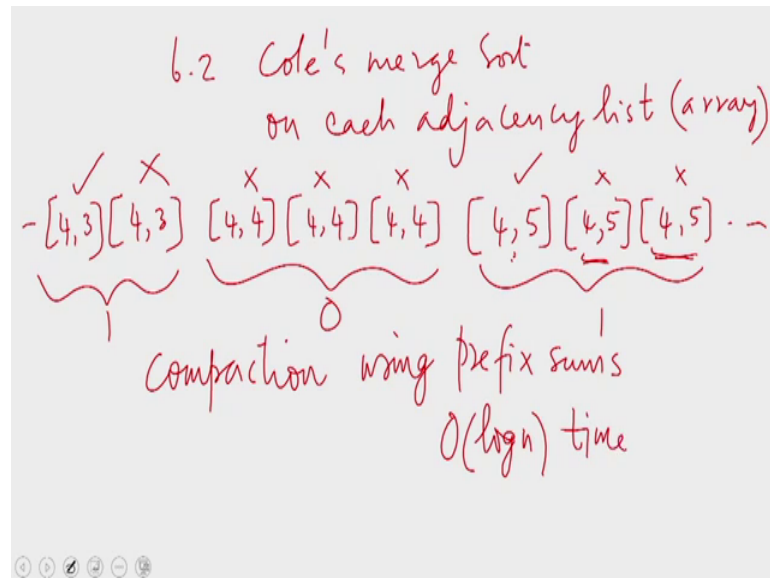 6.2 Cole's merge sort
on each adjacency list (array)
✓ × × × × ✓ × ×
- [4,3] [4,3] [4,4] [4,4] [4,4] [4,5] [4,5] [4,5] . -
1 0 1
compaction using prefix sums
O(log n) time